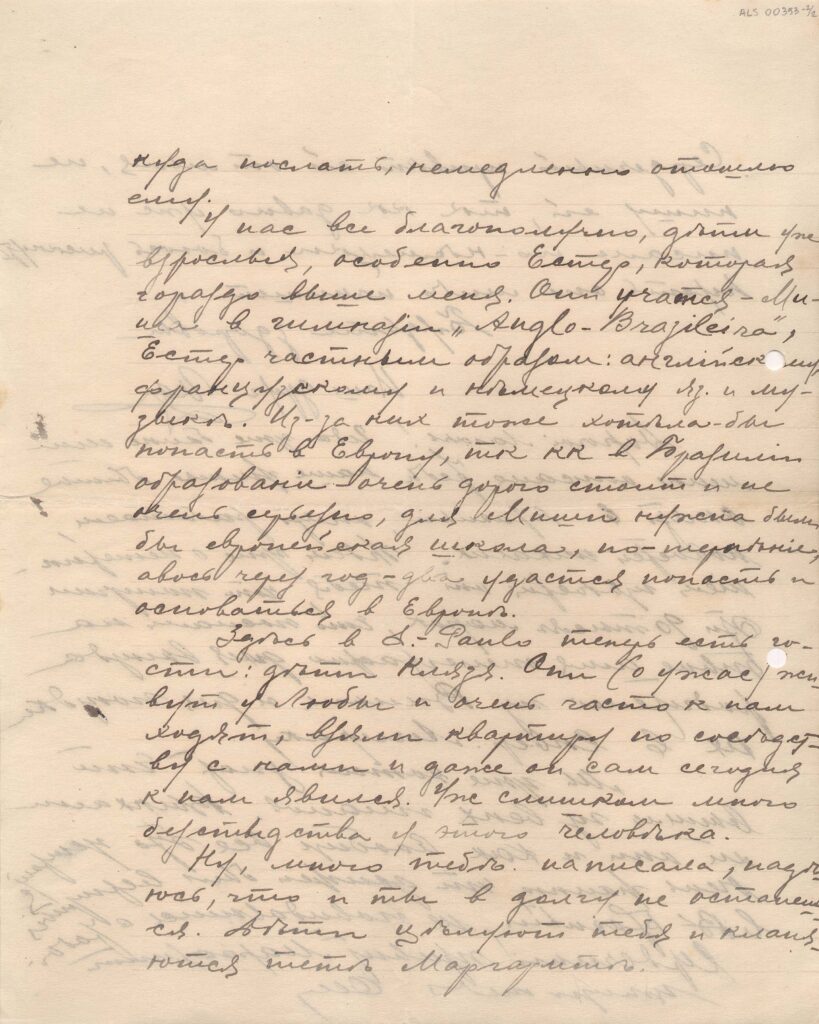 ALS 00353-2/2
куда послать, немедленно отошлю
ему.
У нас все благополучно, дѣти уже
взрослыя, особенно Естер, которая
гораздо выше меня. Они учатся – Ми-
ша в гимназіи „Anglo-Brazileira",
Естер частным образом: англійскому,
французскому и нѣмецкому яз. и му-
зыкѣ. Из-за них тоже хотѣла-бы
попасть в Европу, тк кк в Бразиліи
образованіе очень дорого стоит и не
очень серьезно, для Миши нужна была
бы европейская школа, но – терпѣніе,
авось через год-два удастся попасть и
основаться в Европѣ.
Здѣсь в S.-Paulo теперь есть го-
сти: дѣти Клязя. Они (о ужас) жи-
вут у Любы и очень часто к нам
ходят, взяли квартиру по сосѣдст-
ву с нами и даже он сам сегодня
к нам явился. Уж слишком много
безстыдства у этого человѣка.
Ну, много тебѣ написала, надѣ-
юсь, что и ты в долгу не останеш-
ся. Дѣти цѣлуют тебя и кланя-
ются тетѣ Маргаритѣ.